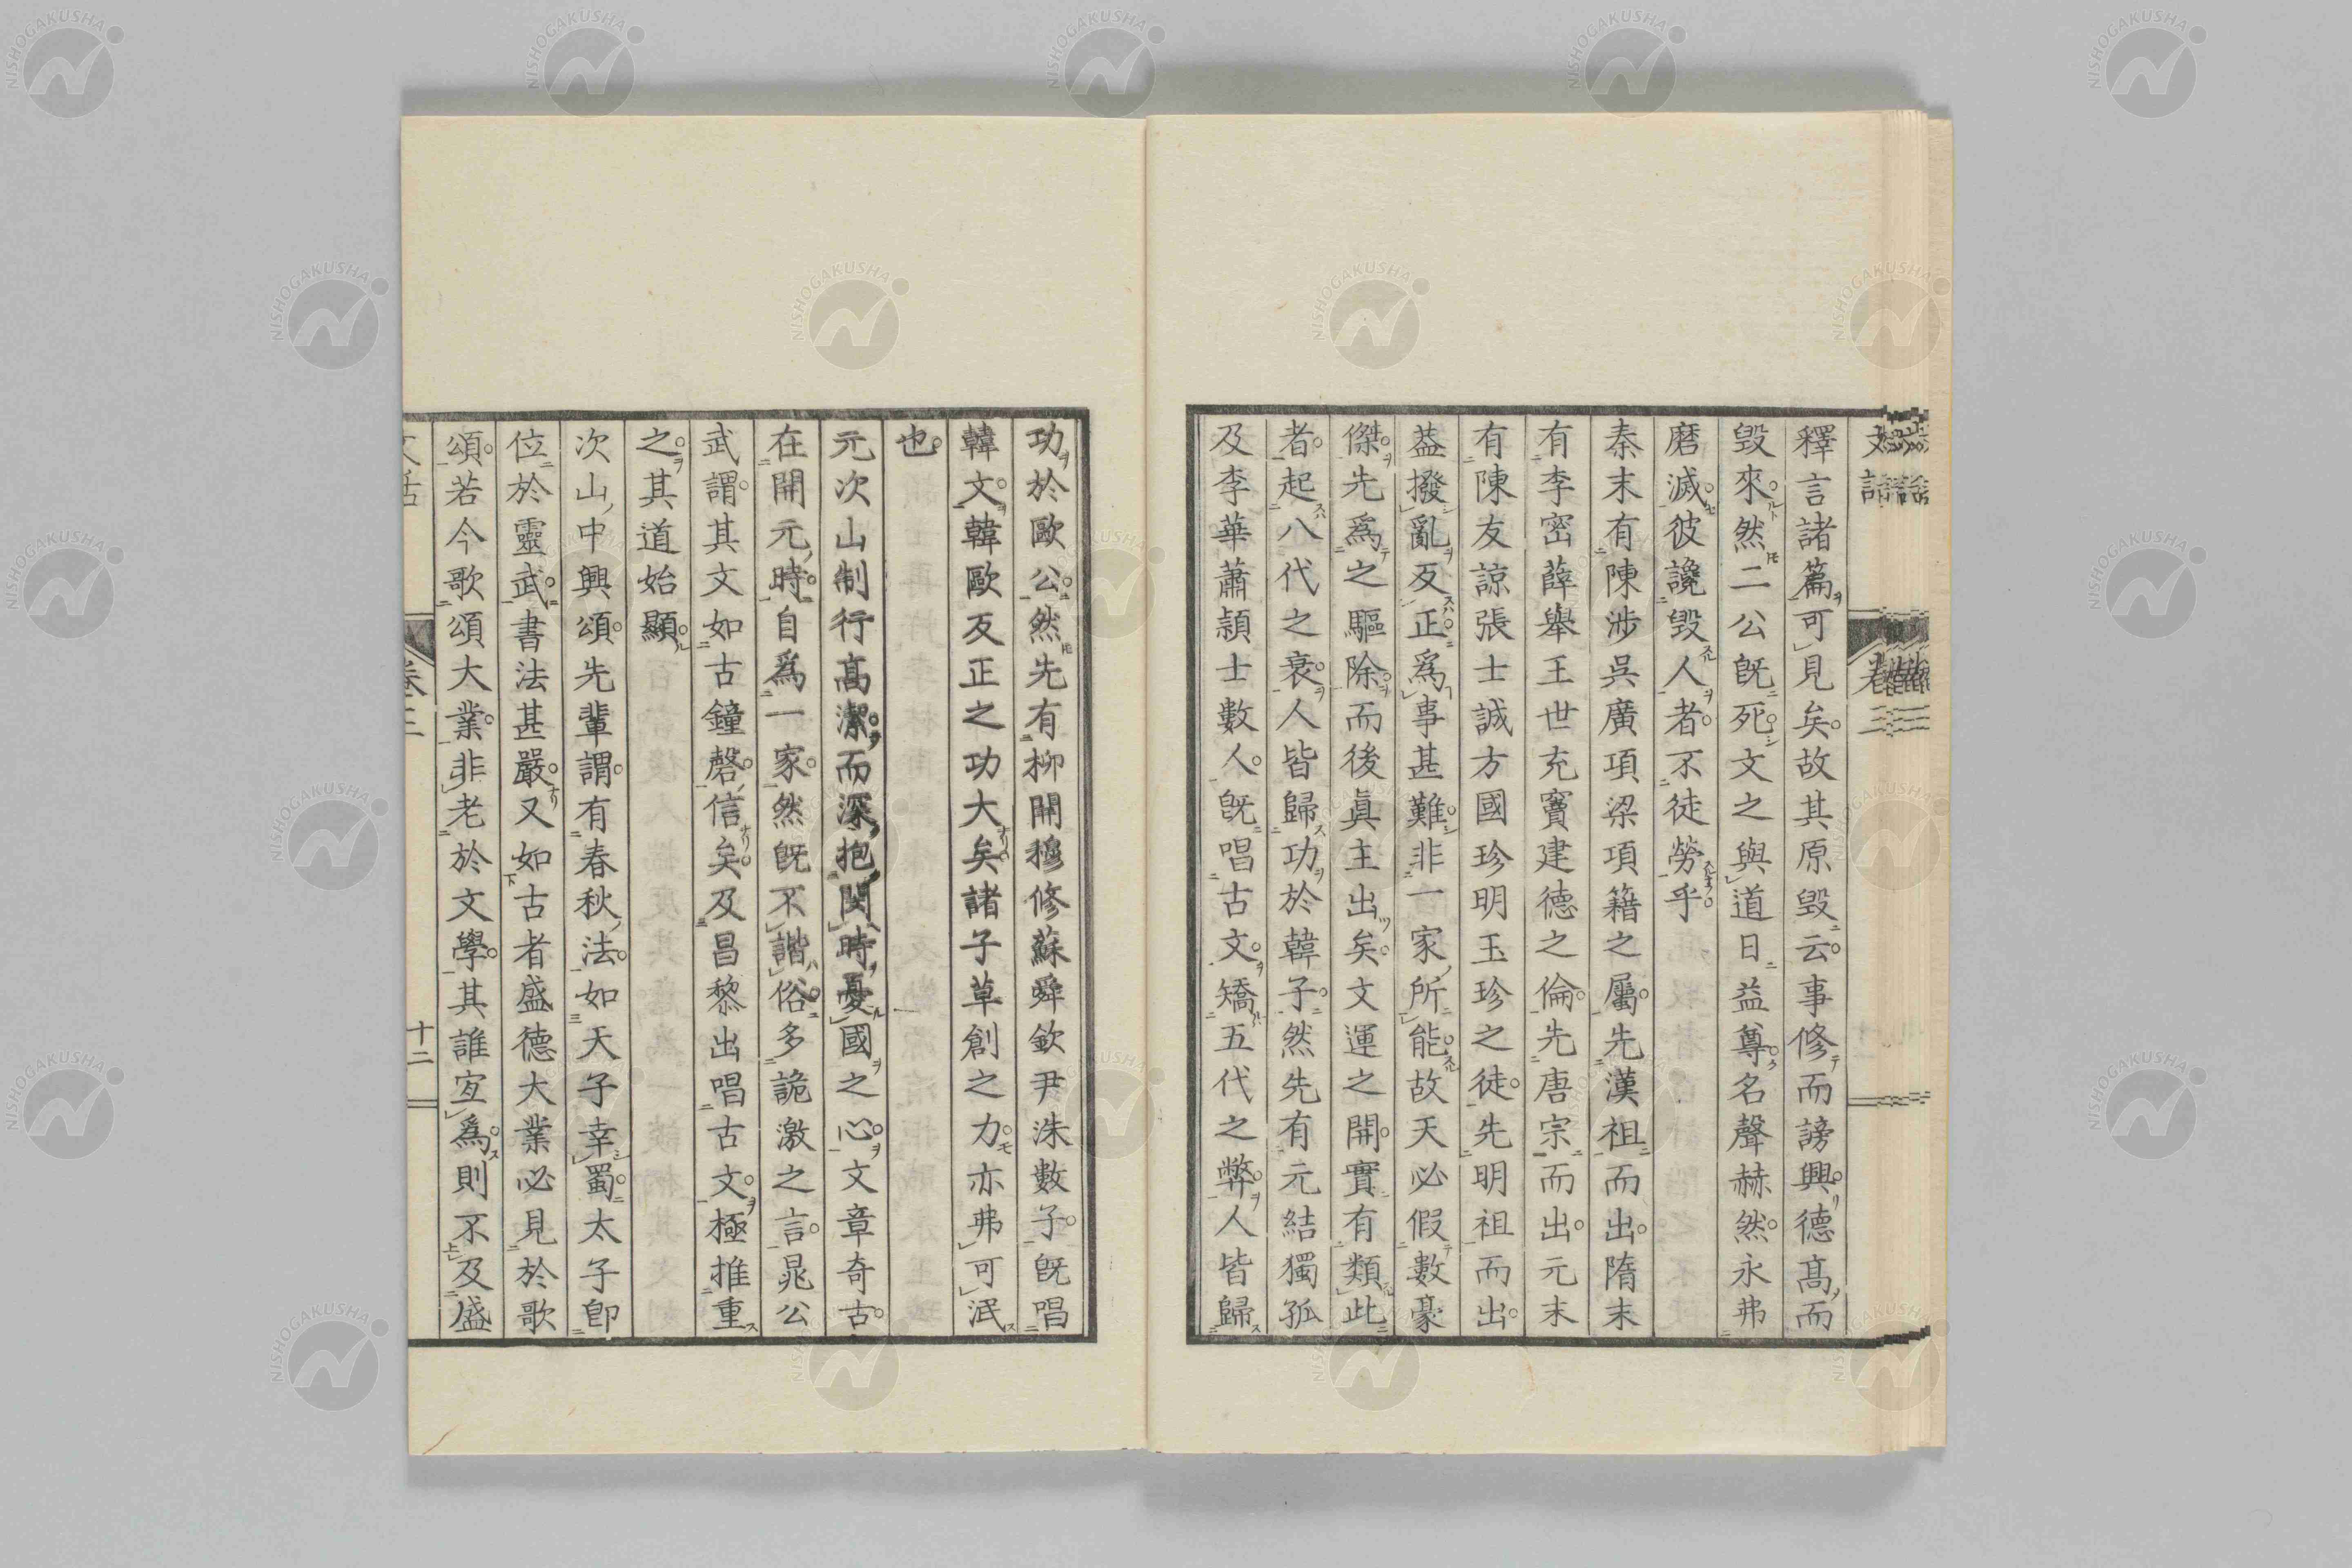 釋言諸篇可見矣故其原毀云事修而謗興德髙而
毀來然二公既死文之與道日益尊名聲赫然永弗
磨滅彼讒毀人者不徒勞乎
秦末有陳涉吳廣項梁項籍之屬先漢祖而出隋末
有李密薛舉王世充竇建德之倫先唐宗而出元末
有陳友諒張士誠方國珍明玉珍之徒先明祖而出
葢撥亂反正爲事甚難非一家所能故天必假數豪
傑先爲之驅除而後眞主出矣文運之開實有類此
者起八代之衰人皆歸功於韓子然先有元結獨孤
及李華蕭頴士數人既唱古文矯五代之弊人皆歸
功於歐公然先有柳開穆修蘇舜欽尹洙數子既唱
韓文韓歐反正之功大矣諸子草創之力亦弗可泯
也
元次山制行高潔而深抱閔時憂國之心文章奇古
在開元時自爲一家然既不諧俗多詭激之言晁公
武謂其文如古鐘磬信矣及昌黎出唱古文極推重
之其道始顯
次山中興頌先輩謂有春秋法如天子幸蜀太子卽
位於靈武書法甚嚴又如古者盛德大業必見於歌
頌若今歌頌大業非老於文學其誰宜爲則不及盛
文話
卷三
十二